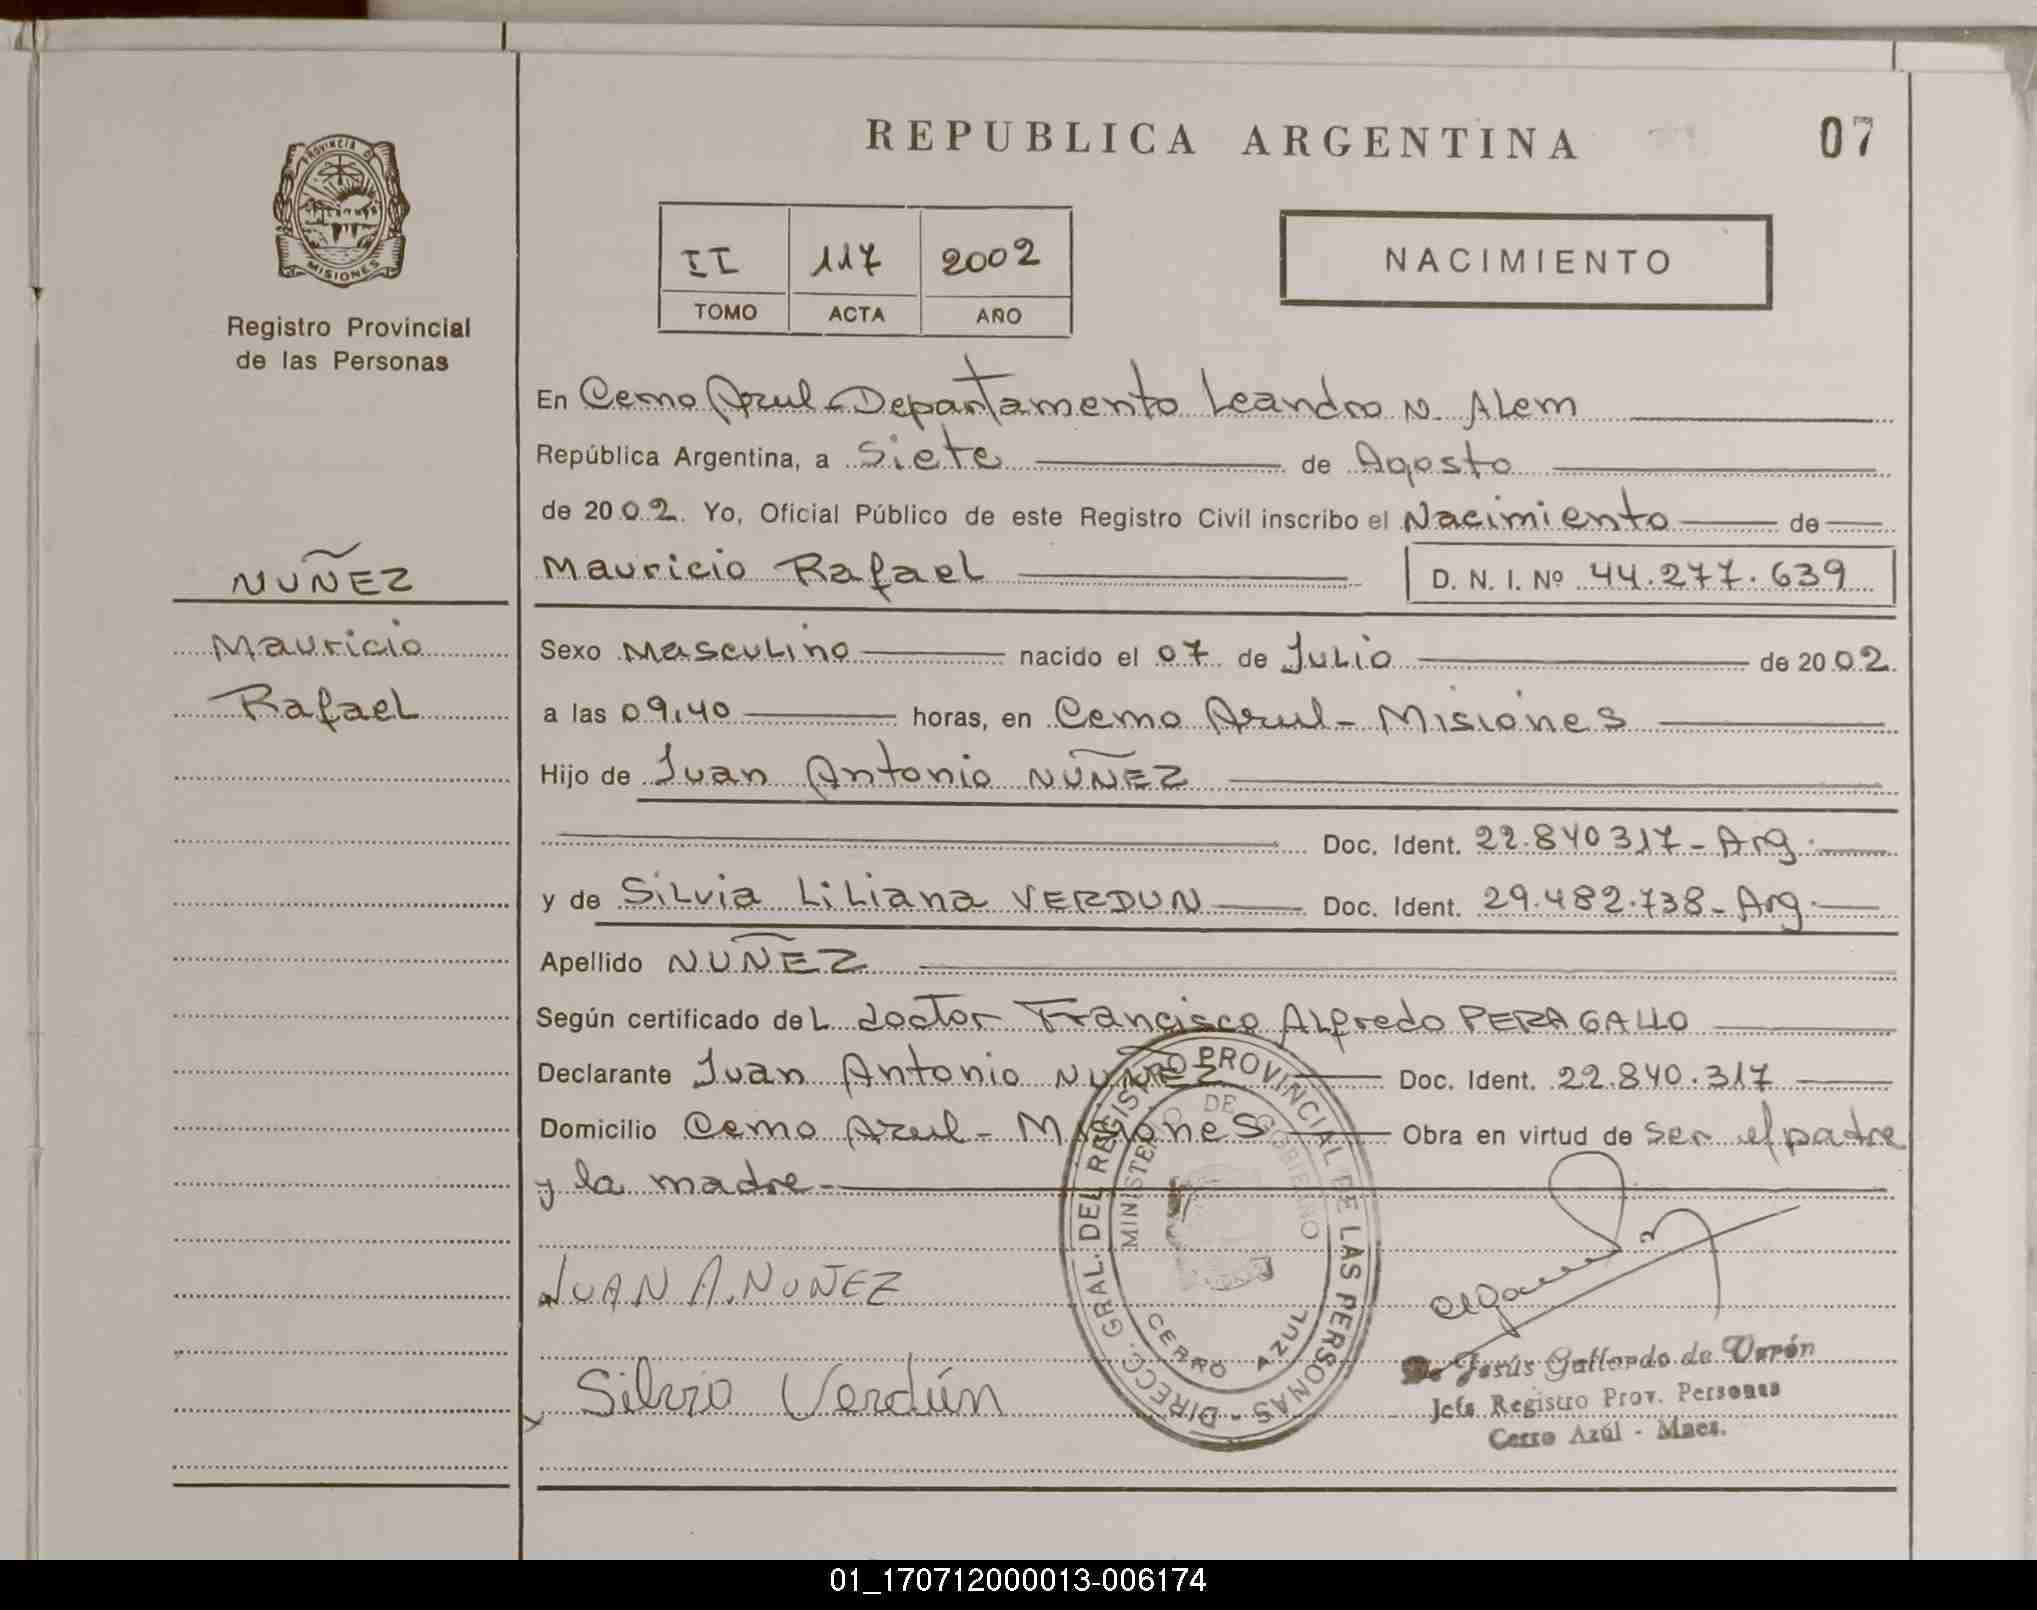 REPUBLICA ARGENTINA
07
PROVINCIA D
MISIONES
Registro Provincial
de las Personas
II 117 2002
TOMO ACTA AÑO
NACIMIENTO
En Cerro Azul - Departamento Leandro N. Alem
República Argentina, a Siete de Agosto
de 2002. Yo, Oficial Público de este Registro Civil inscribo el Nacimiento de
Mauricio Rafael D. N. I. Nº 44.277.639
NUÑEZ
Mauricio
Rafael
Sexo Masculino nacido el 07 de Julio de 2002.
a las 09,40 horas, en Cerro Azul - Misiones
Hijo de Juan Antonio NUÑEZ
Doc. Ident. 22.840317 - Arg.
y de Silvia Liliana VERDUN Doc. Ident. 29.482.738 - Arg.
Apellido NUÑEZ
Según certificado del doctor Francisco Alfredo PERAGALLO
Declarante Juan Antonio NUÑEZ Doc. Ident. 22.840.317
Domicilio Cerro Azul - Misiones Obra en virtud de ser el padre
y la madre -
DIRECC. GRAL. DEL REGISTRO PROVINCIAL DE LAS PERSONAS -
MINISTERIO DE GOBIERNO
CERRO AZUL
JUAN A. NUÑEZ
Silvia Verdún
Jesús Gallardo de
Jefe Registro Prov. Personas
Cerro Azúl - Mnes.
01_170712000013-006174